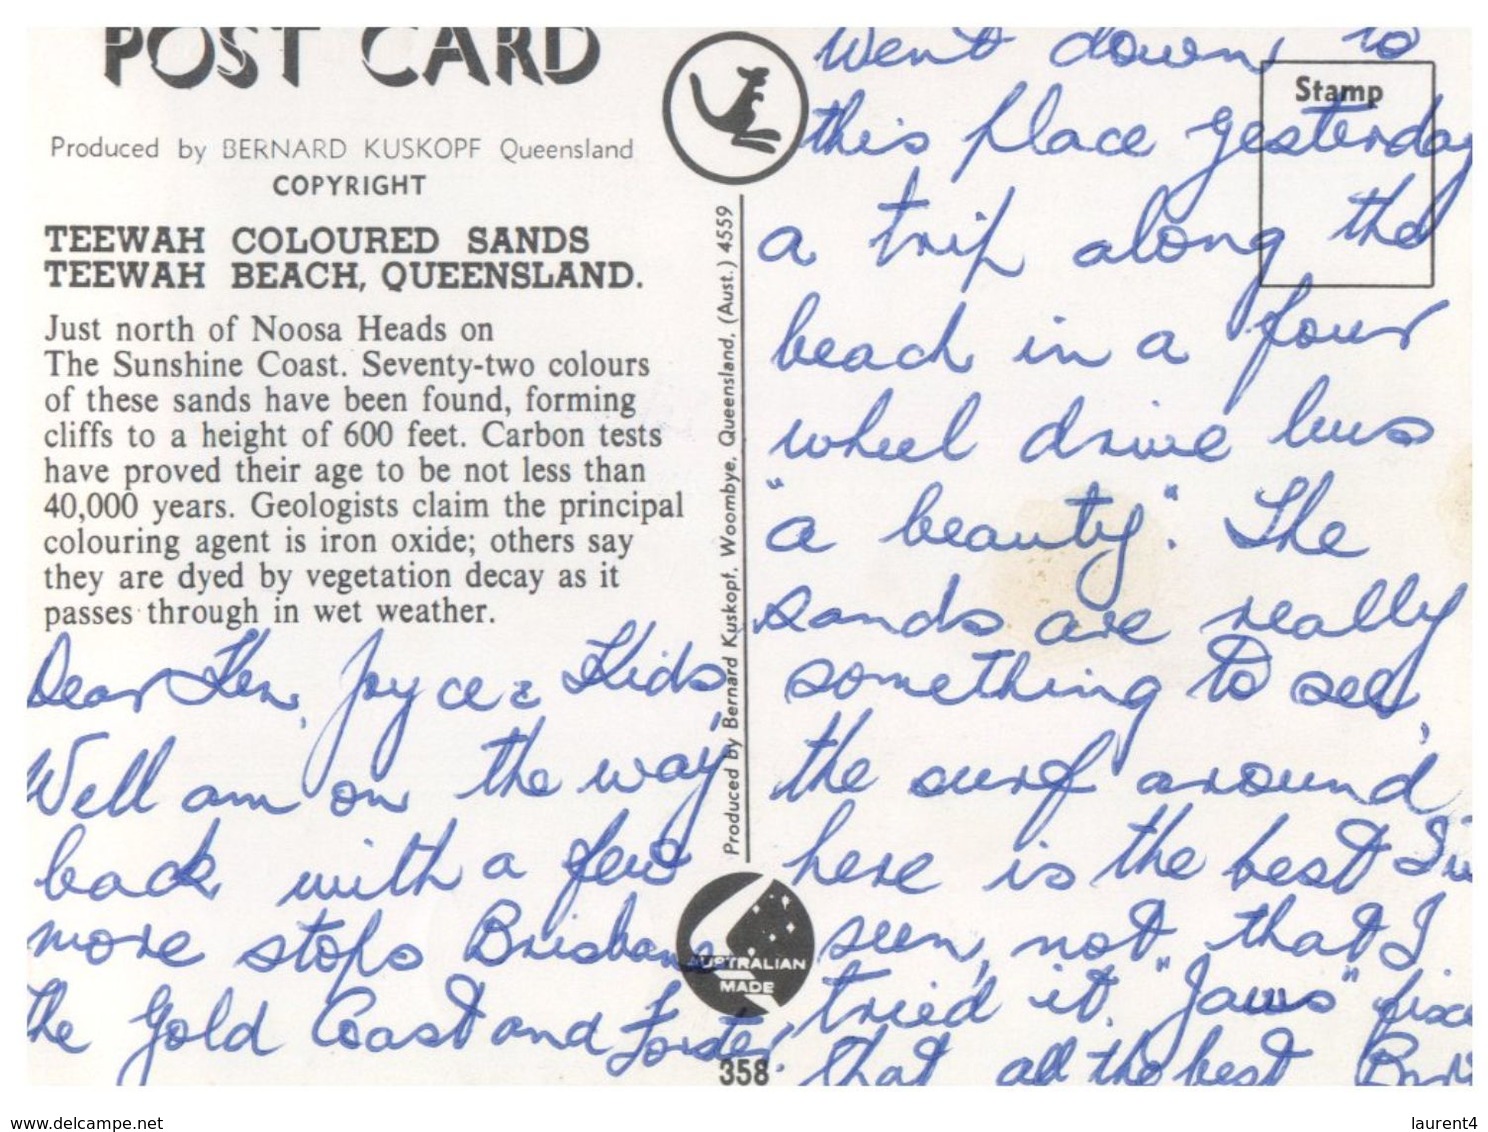 POST CARD
Produced by BERNARD KUSKOPF Queensland
COPYRIGHT
TEEWAH COLOURED SANDS
TEEWAH BEACH, QUEENSLAND.
Just north of Noosa Heads on
The Sunshine Coast. Seventy-two colours
of these sands have been found, forming
cliffs to a height of 600 feet. Carbon tests
have proved their age to be not less than
40,000 years. Geologists claim the principal
colouring agent is iron oxide; others say
they are dyed by vegetation decay as it
passes through in wet weather.
Dear Ken, Joyce & Kids,
Well am on the way
back with a few
more stops Brisbane
the Gold Coast and Forster.
Produced by Bernard Kuskopf, Woombye, Queensland, (Aust.) 4559
AUSTRALIAN
MADE
358
Stamp
Went down to
this place yesterday
a trip along the
beach in a four
wheel drive bus
"a beauty". The
sands are really
something to see,
the surf around
here is the best I've
seen, not that I
tried it "Jaws" fixed
that all the best
bp-delcampe.net
laurent4